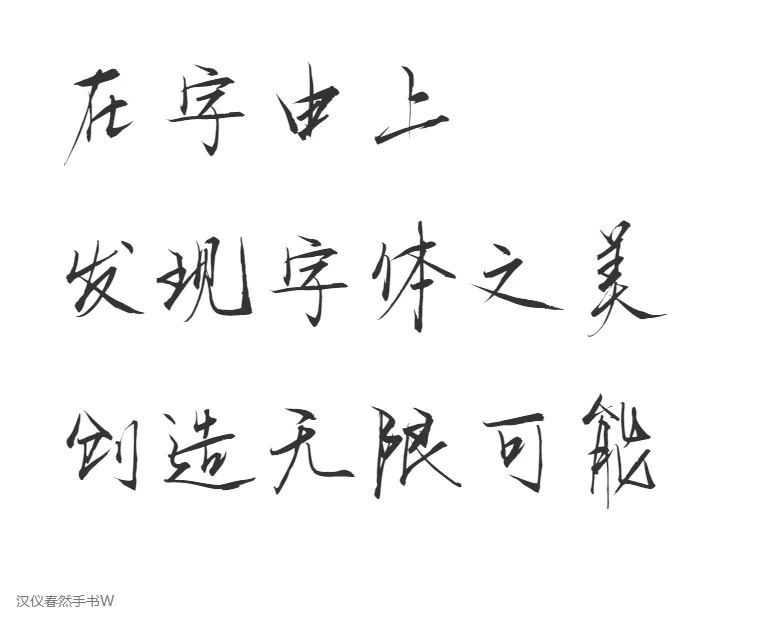 在字由上
发现字体之美
创造无限可能
汉仪春然手书W